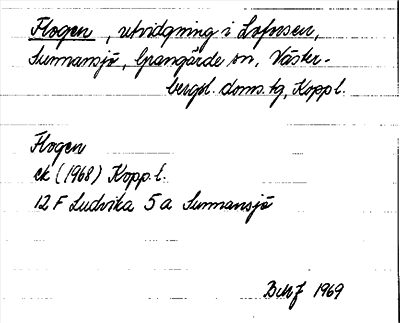 Flogen, utvidgning i Loforsen,
Sunnansjö, Grangärde sn, Väster-
bergsl. doms. tg, Kopp l.
Flogen
ek (1968) Kopp. l.
12 F Ludvika 5 a Sunnansjö
1969